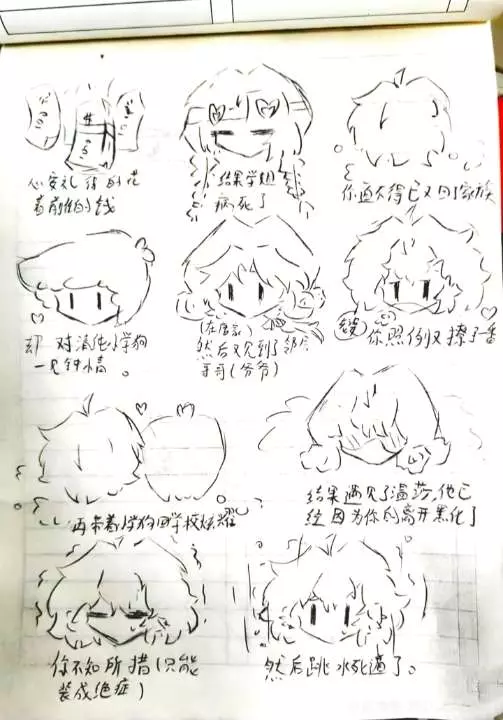 心安礼得的花
着前任的钱
结果学姐
病死了
你逼不得已又回了家族
却对清纯小学狗
一见钟情。
然后又见到了邻居
哥哥(爷爷)
你照例又撩了一番
再带着小学狗回学校炫耀
结果遇见了温莎,他已
经因为你的离开黑化了
你不知所措(只能
装成绝症)
然后跳水死遁了。